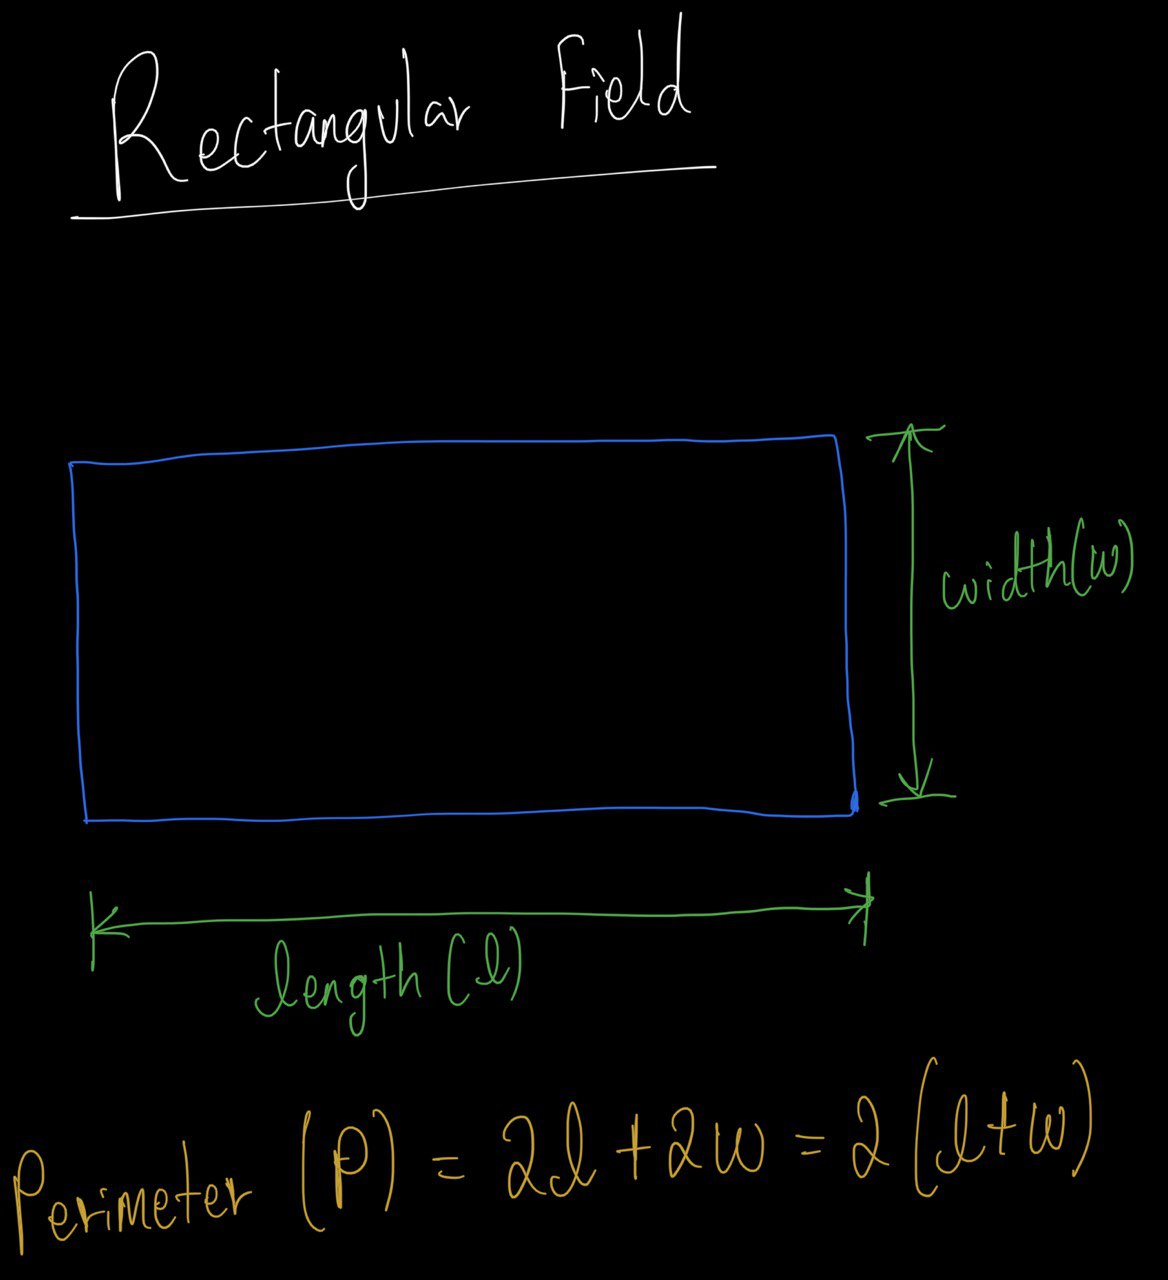 Rectangular Field
width(w)
length (l)
Perimeter (P) = 2l + 2w = 2(l+w)